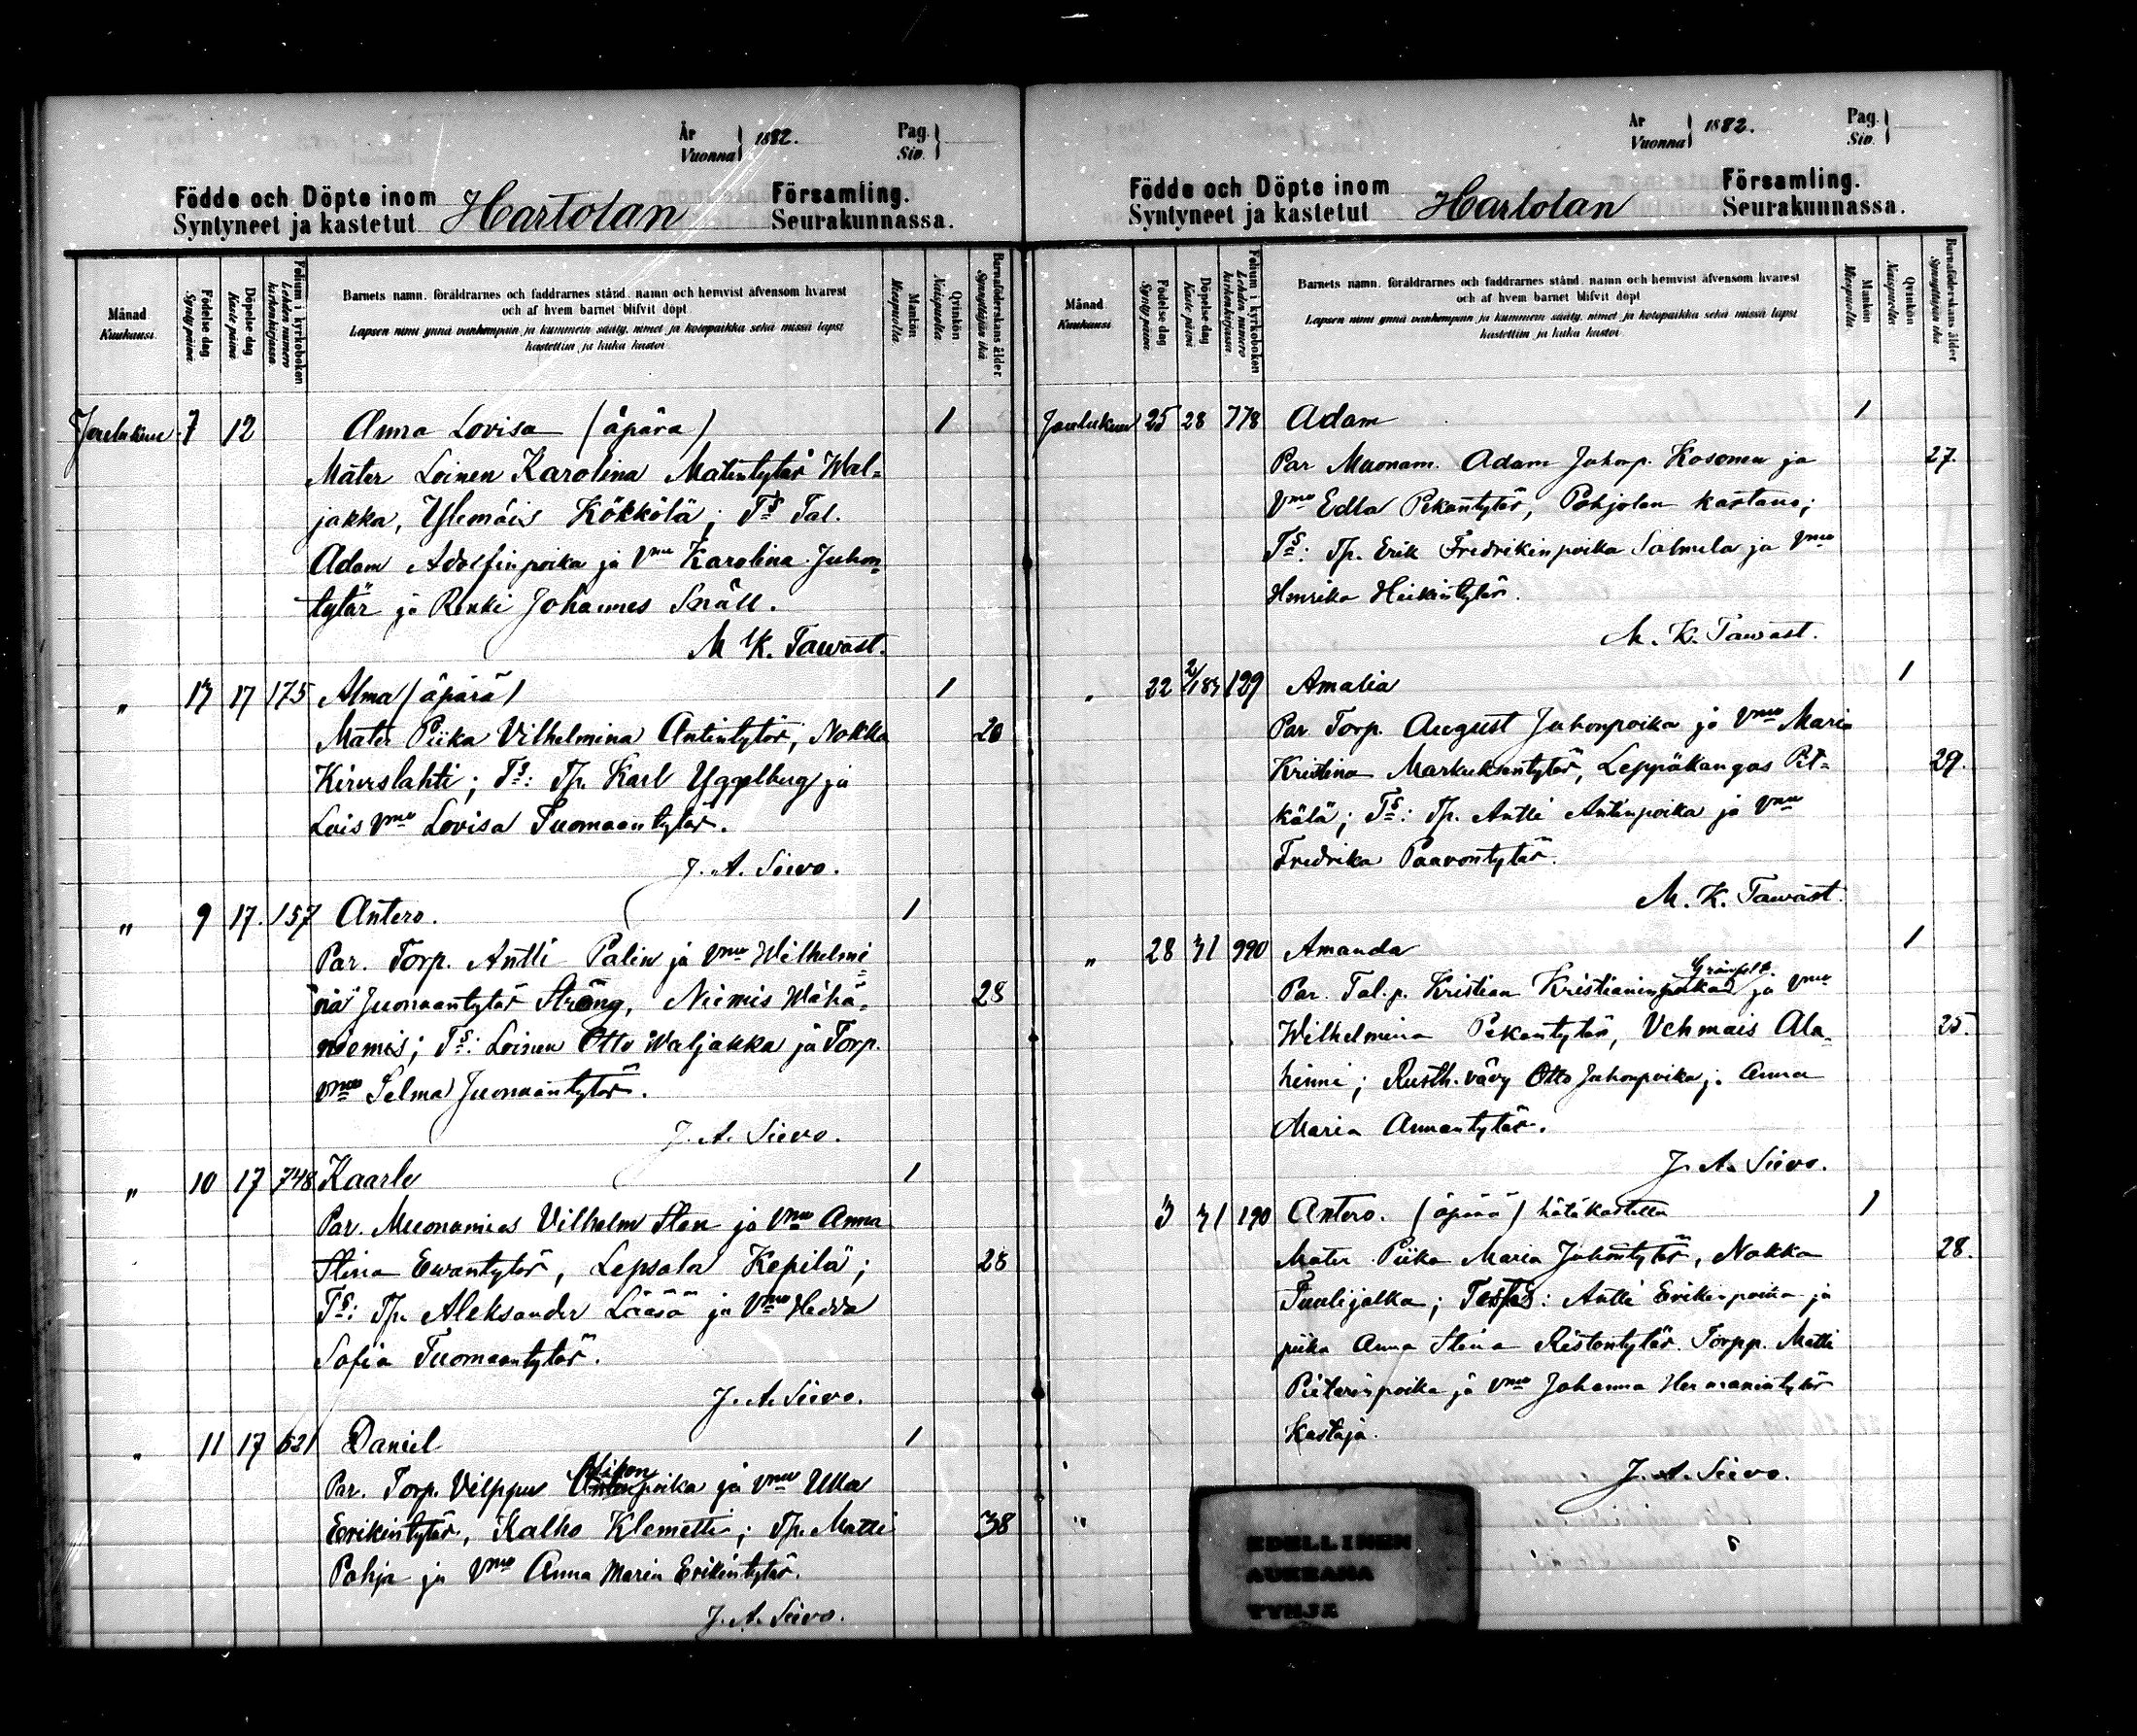 År
Vuonna 1882.
Pag.
Siv.
Födde och Döpte inom Församling.
Syntyneet ja kastetut Hartolan Seurakunnassa.
Månad
Kuukausi.
Födelse dag
Synty päivä
Döpelse dag
Kaste päivä
Folium i kyrkoboken
Lehden numero kirkonkirjassa.
Barnets namn, föräldrarnes och faddrarnes stånd, namn och hemvist äfvensom hvarest
och af hvem barnet blifvit döpt
Lapsen nimi ynnä vanhempain ja kummein sääty, nimet ja kotopaikka sekä missä lapsi
kastettiin ja kuka kastoi
Mankön
Miespuolta
Qvinkön
Naispuolta
Barnaföderskans ålder
Synnyttäjän ikä
Joulukuu 7 12 Anna Lovisa (äpärä) 1
Mater Loinen Karolina Matintytär Wal=
jakka, Ylemäis Kökkölä; Ts Tal.
Adam Adolfinpoika ja Vmo Karolina Juhon
tytär ja Renki Johannes Snäll.
M K. Tawast.
" 13 17 175 Alma (äpärä) 1
Mater Piika Vilhelmina Antintytär, Nokka 20
Kirveslahti; Ts: Tp. Karl Yggelburg ja
Lois vmo Lovisa Tuomaantytär.
J. A. Sievo.
" 9 17. 157 Antero. 1
Par. Torp. Antti Palin ja Vmo Wilhelmi
na Juonaantytär Sträng, Niemis Wähä= 28
niemis; Ts: Loinen Otto Waljakka ja Torp.
vmo Selma Juonaantytär.
J. A. Sievo.
" 10 17 748 Kaarle 1
Par. Muonamies Vilhelm Sten ja Vmo Anna
Stina Ewantytär, Lepsala Kepilä; 28
Ts: Tp. Aleksander Lääsä ja Vmo Hedda
Sofia Tuomaantytär.
J. A. Sievo.
" 11 17 621 Daniel 1
Par. Torp. Vilppu poika ja Vmo Ulla
Erikintytär, Kalho Klemetti; Tp. Matti 38
Pohja ja Vmo Anna Maria Erikintytär.
J. A. Sievo.
År
Vuonna 1882.
Pag.
Siv.
Födde och Döpte inom Församling.
Syntyneet ja kastetut Hartolan Seurakunnassa.
Månad
Kuukausi
Födelse dag
Synty päivä
Döpelse dag
Kaste päivä
Folium i kyrkoboken
Lehden numero kirkonkirjassa.
Barnets namn, föräldrarnes och faddrarnes stånd, namn och hemvist äfvensom hvarest
och af hvem barnet blifvit döpt
Lapsen nimi ynnä vanhempain ja kummein sääty, nimet ja kotopaikka sekä missä lapsi
kastettiin ja kuka kastoi
Mankön
Miespuolta
Qvinkön
Naispuolta
Barnaföderskans ålder
Synnyttäjän ikä
Joulukuu 25 28 778 Adam 1
Par Muonam. Adam Juhonp. Kosonen ja 27.
Vmo Edla Pekantytär, Pohjolan kartano;
Ts: Tp. Erik Fredrikinpoika Salmela ja Vmo
Henrika Heikintytär.
M. K. Tawast.
" 22 2/1 83 129 Amalia 1
Par Torp. August Juhonpoika ja Vmo Maria
Kristina Markuksentytär, Leppäkangas Pit= 29.
kälä; Ts: Tp. Antti Antinpoika ja Vmo
Fredrika Paavontytär.
M. K. Tawast.
" 28 31 990 Amanda 1
Grönfelt.
Par. Tal.p. Kristian Kristianinpoika ja Vmo
Wilhelmina Pekantytär, Vehmais Ala 25.
hinni; Rusth. vävy Otto Juhonpoika j. Anna
Maria Annantytär.
J. A. Sievo.
3 31 190 Antero. (äpärä) hätäkastettu 1
Mater Piika Maria Juhontytär, Nokka 28.
Tuulijalka; Testes: Antti Erikinpoika ja
piika Anna Stina Ristontytär. Torpp. Matti
Pieterinpoika ja Vmo Johanna Hermanintytär
Kastaja.
J. A. Sievo.
"
EDELLINEN
AUKEAMA
TYHJÄ